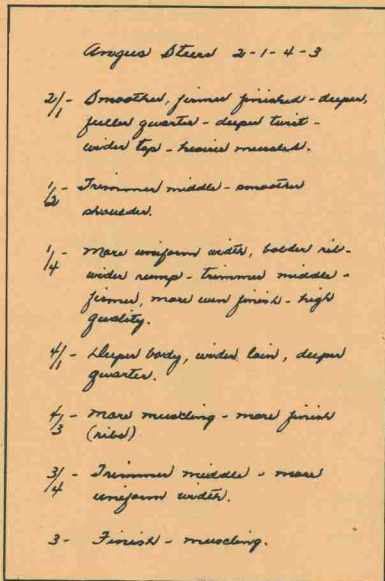 Angus Steers 2-1-4-3
2/1 - Smoother, firmer finished - deeper,
fuller quarter - deeper twist -
wider top - heavier muscled.
1/2 - Trimmer middle - smoother
shoulder.
1/4 - More uniform width, bolder rib -
wider rump - trimmer middle -
firmer, more even finish - high
quality.
4/1 - Deeper body, wider loin, deeper
quarter.
4/3 - More muscling - more finish
(ribs)
3/4 - Trimmer middle - more
uniform width.
3 - Finish - muscling.